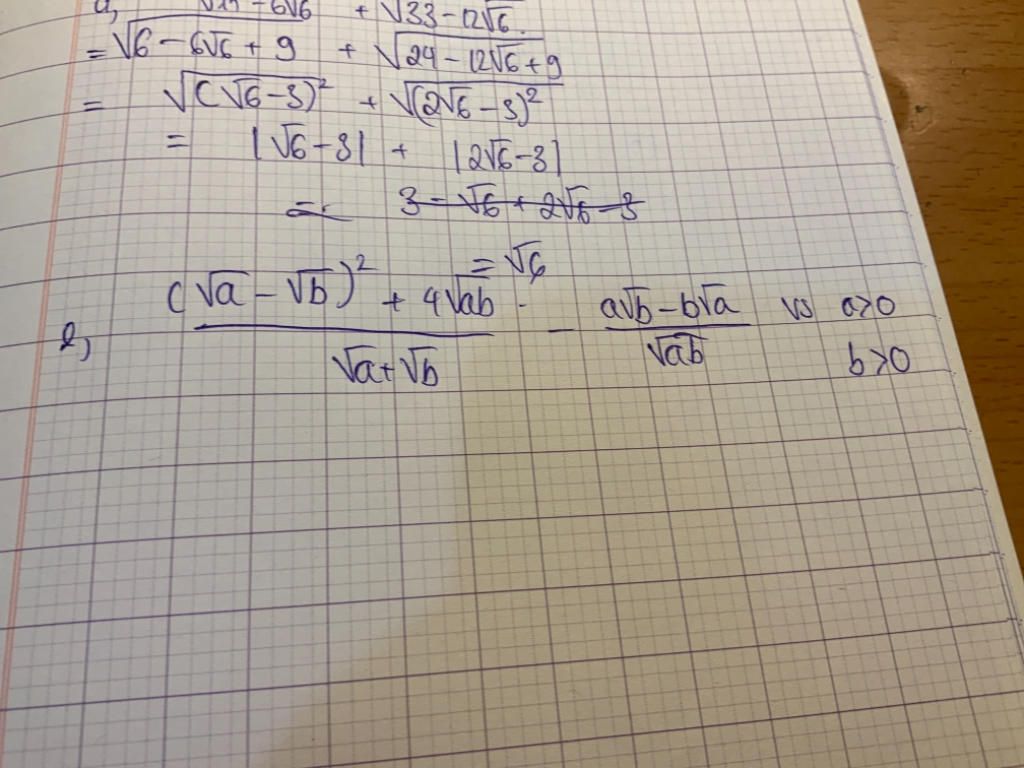 √15 - 6√6 + √33 - 12√6
= √6 - 6√6 + 9 + √24 - 12√6 + 9
= √(√6 - 3)² + √(2√6 - 3)²
= |√6 - 3| + |2√6 - 3|
= 3 - √6 + 2√6 - 3
= √6
2, (√a - √b)² + 4√ab / √a + √b - a√b - b√a / √ab vs a>0
b>0